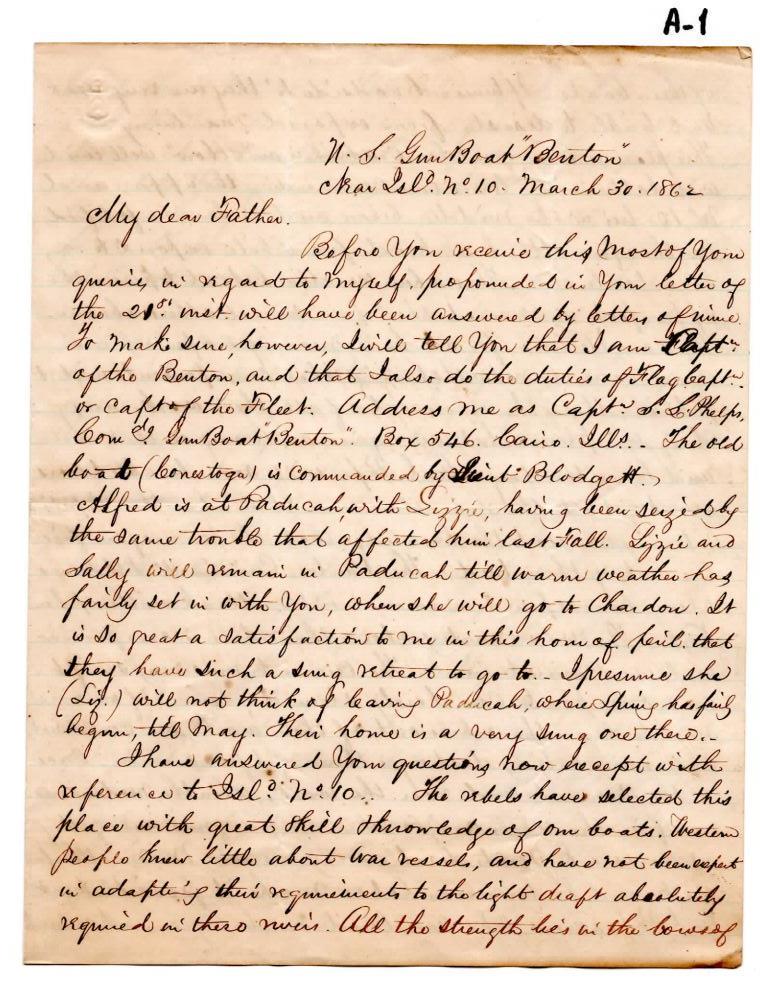 A-1
U. S. GunBoat "Benton"
Near Isl^d. N^o. 10. March 30. 1862
My dear Father.
Before You receive this Most of Your
queries in regard to Myself, propounded in Your letter of
the 21^st. inst. will have been answered by letters of mine.
To make sure, however, I will tell You that I am Capt^n.
of the Benton, and that I also do the duties of Flag Capt^n.
or Capt of the Fleet. Address me as Capt^n S. L. Phelps,
Com^dg GunBoat "Benton". Box 546. Cairo. Ills. - The old
boat (Conestoga) is commanded by Lieut Blodgett.
Alfred is at Paducah, with Lizzie, having been seized by
the same trouble that affected him last Fall. Lizzie and
Sally will remain in Paducah till warm weather has
fairly set in with You, when she will go to Chardon. It
is so great a satisfaction to me in this hour of peril, that
they have such a snug retreat to go to. - I presume she
(Liz.) will not think of leaving Paducah, where Spring has fairly
begun, till May. Their home is a very snug one there. -
I have answered Your questions now except with
reference to Isl^d. N^o. 10. The rebels have selected this
place with great skill & knowledge of our boats. Western
people knew little about war vessels, and have not been expert
in adapting their requirements to the light draft absolutely
required in these rivers. All the strength lies in the bows of